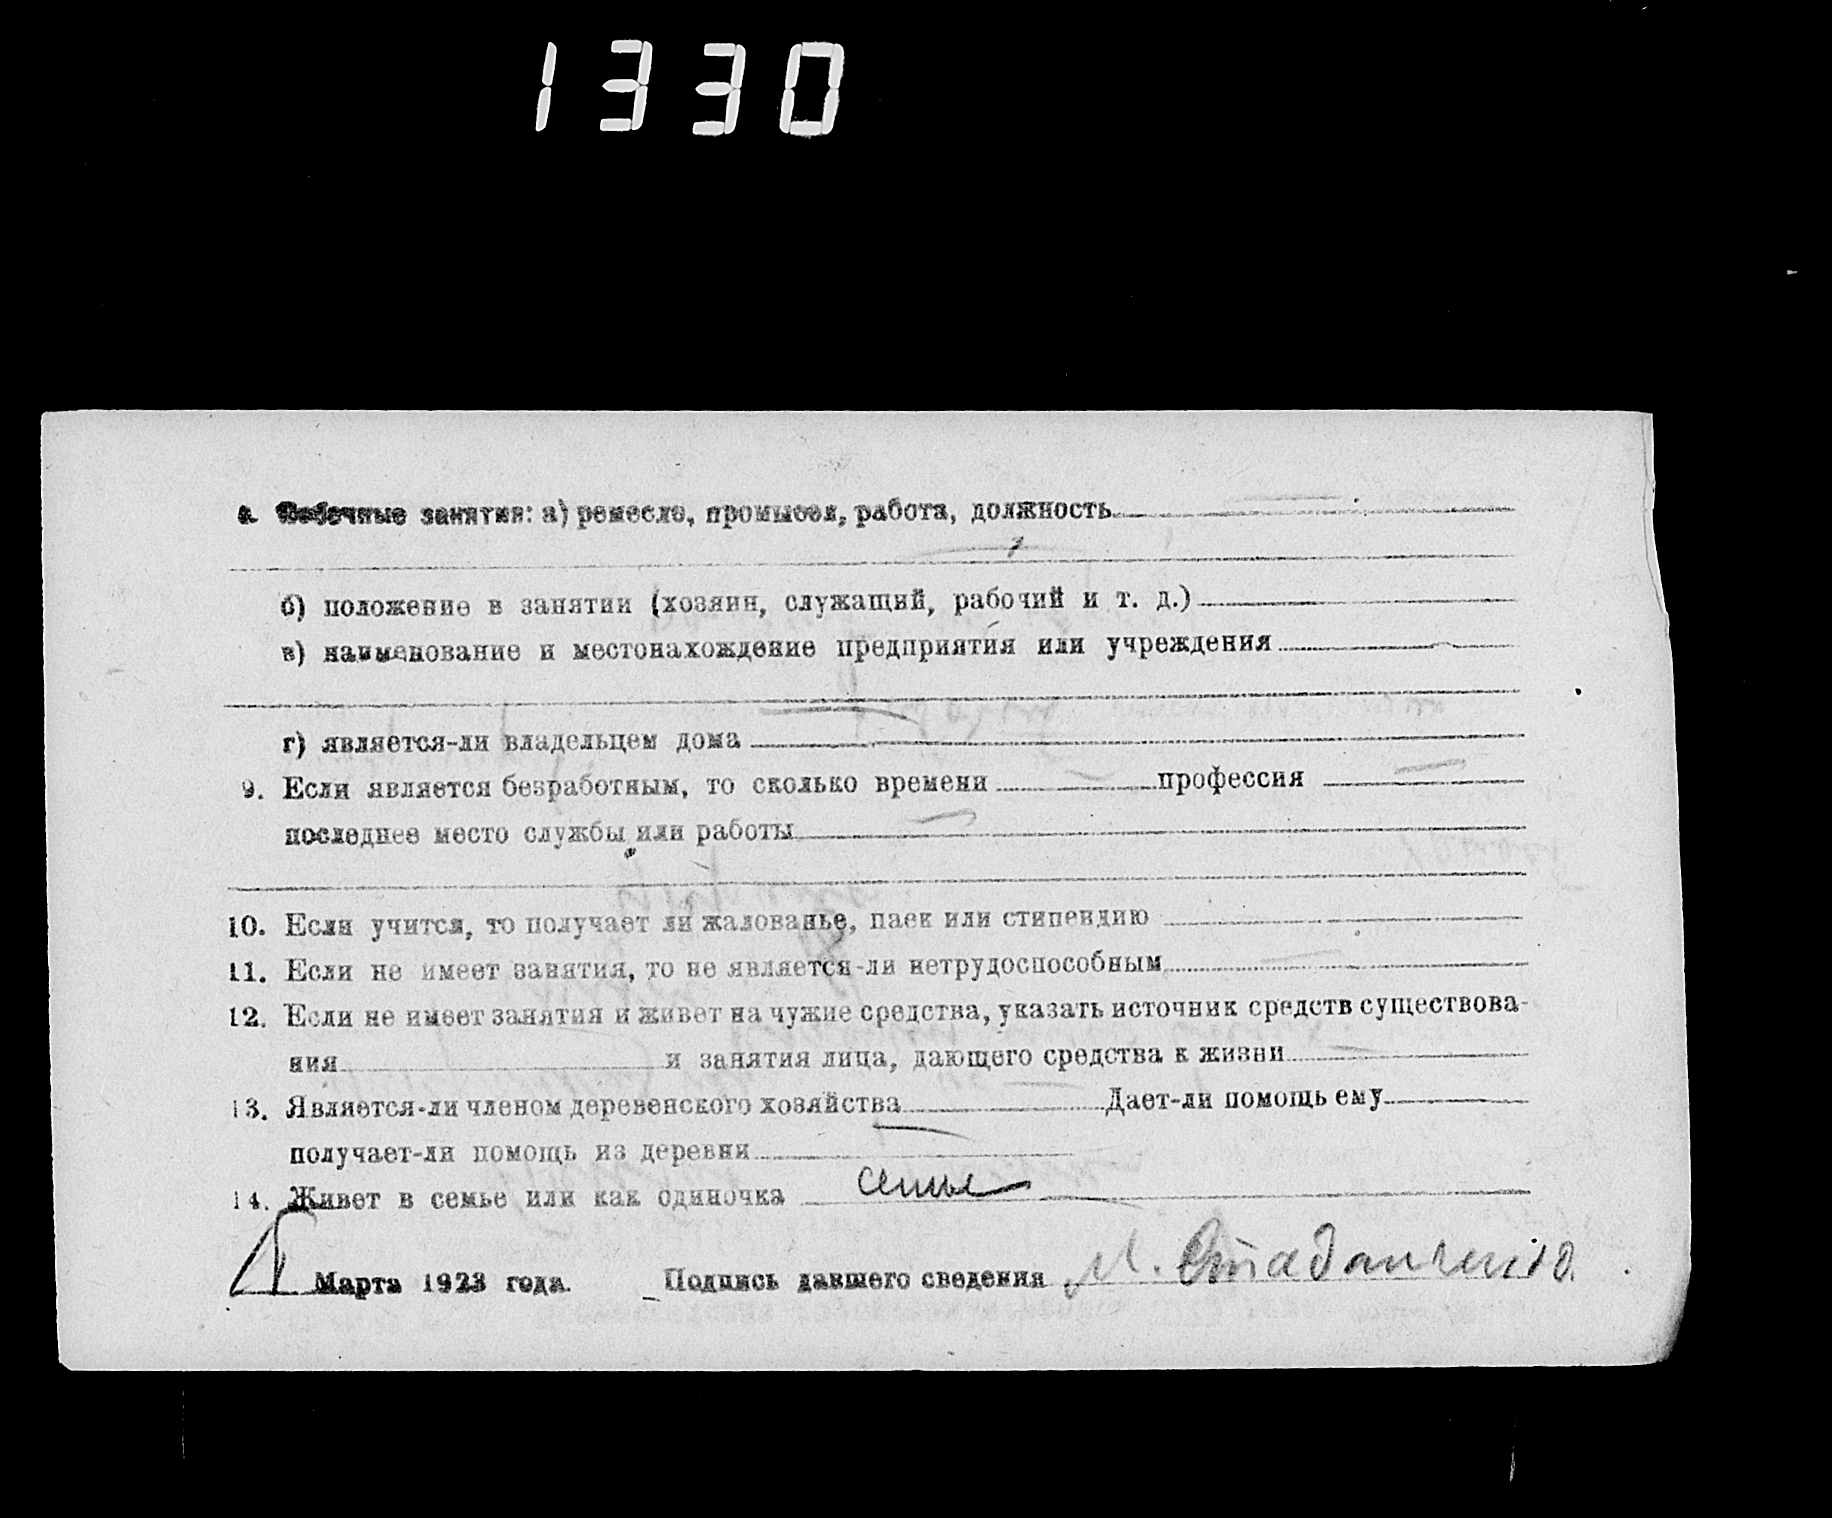 1330
Побочные занятия: а) ремесло, промысел, работа, должность
б) положение в занятии (хозяин, служащий, рабочий и т. д.)
в) наименование и местонахождение предприятия или учреждения
г) является-ли владельцем дома
9. Если является безработным, то сколько времени профессия
последнее место службы или работы
10. Если учится, то получает ли жалованье, паек или стипендию
11. Если не имеет занятия, то не является-ли нетрудоспособным
12. Если не имеет занятия и живет на чужие средства, указать источник средств существова-
ния и занятия лица, дающего средства к жизни
13. Является-ли членом деревенского хозяйства Дает-ли помощь ему
получает-ли помощь из деревни
14. Живет в семье или как одиночка семье
Марта 1923 года. Подпись давшего сведения